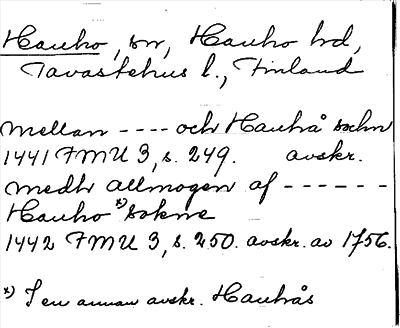 Hauho, sn, Hauho hd,
Tavastehus l., Finland
mellan ---- och Hauhå sochn
1441 FMU 3, s. 249. avskr.
medh allmogen af ------
Hauho x) sokne
1442 FMU 3, s. 250. avskr. av 1756.
x) I en annan avskr. Hauhås